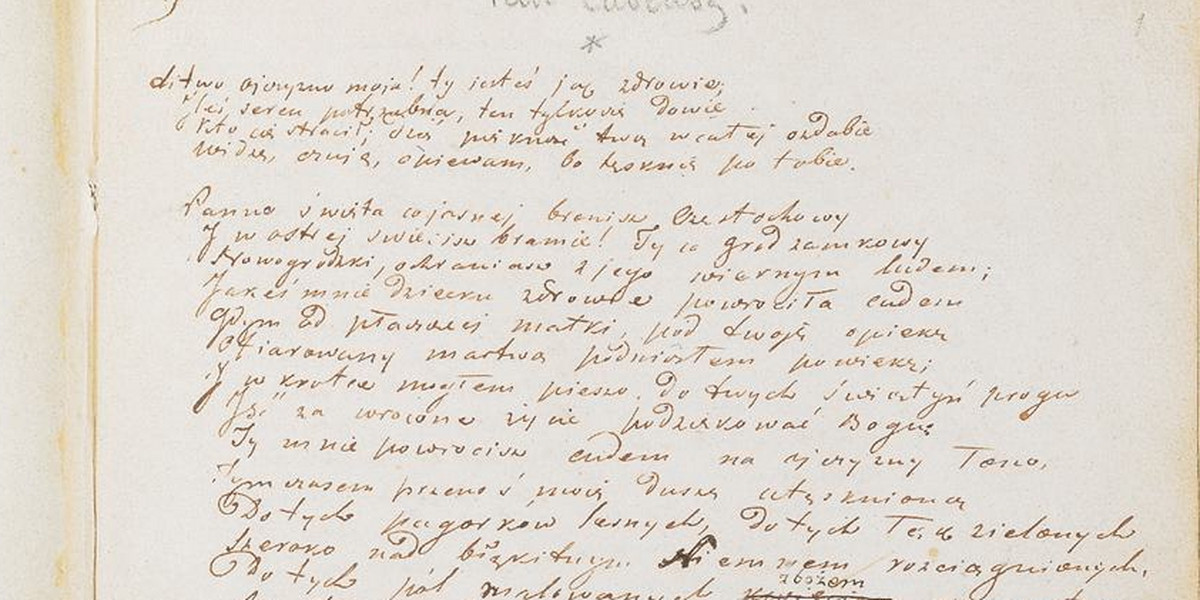 Pan Tadeusz.
*
Litwo ojczyzno moja! ty jesteś jak zdrowie;
Ileś
sercu potrzebna, ten tylkosię dowie
Kto cię stracił; dziś pięknosć twą w całej ozdobie
widzę, czuję, opiewam, bo tęsknię po tobie.
Panno święta cojasnej bronisz Czestochowy
I w ostrej świecisz bramie! Ty co gród zamkowy
Nowogródzki, ochraniasz z jego wiernym ludem;
Jakeś mnie dziecko zdrowie powróciła cudem
Gdym od płaczącej matki, pod twoję opiekę
Ofiarowany martwą podniosłem powiekę;
I w krotce mogłem pieszo, do twych świątyń progu
Iść za wrócone życie podziękować Bogu
Ty mnie powrócisz cudem na ojczyzny łono,
Tymczasem przenoś moję duszę utęsknioną
Do tych pagorków lesnych, do tych Łąk zielonych
szeroko nad błękitnym Niemnem rozciągnionych,
zbożem
Do tych pól malowanych